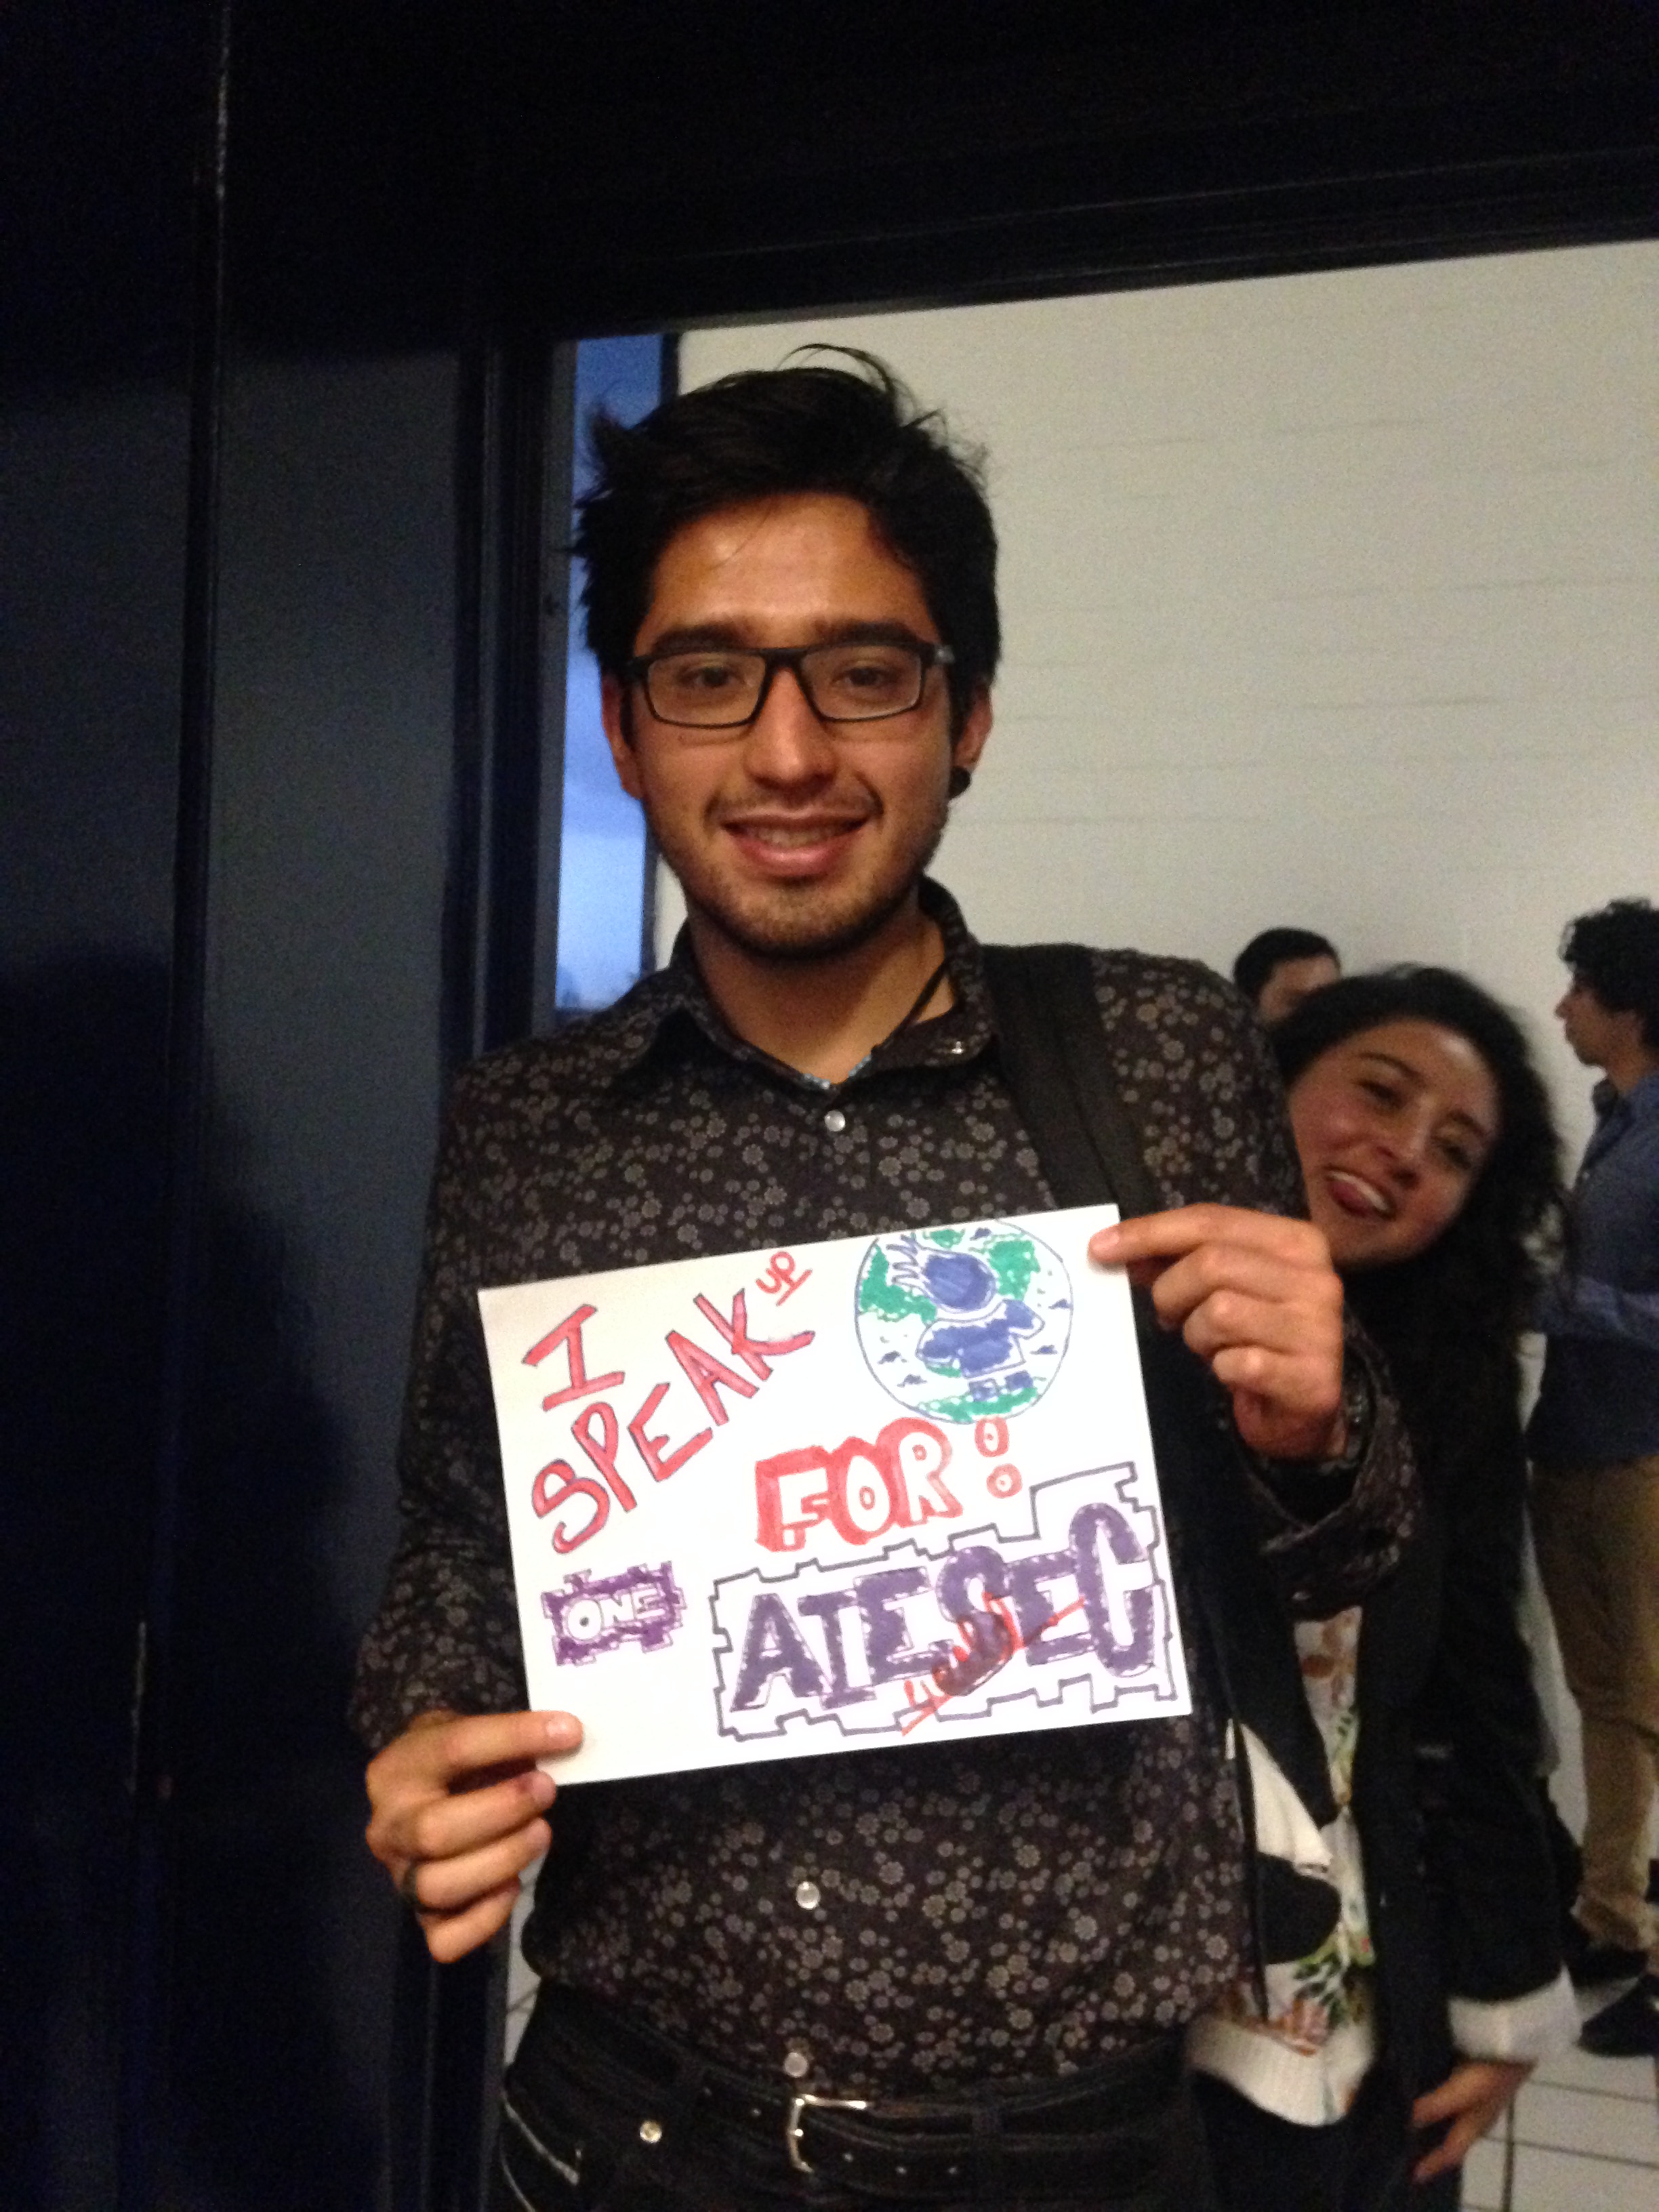 I
SPEAK UP
FOR:
ONE
AIESEC